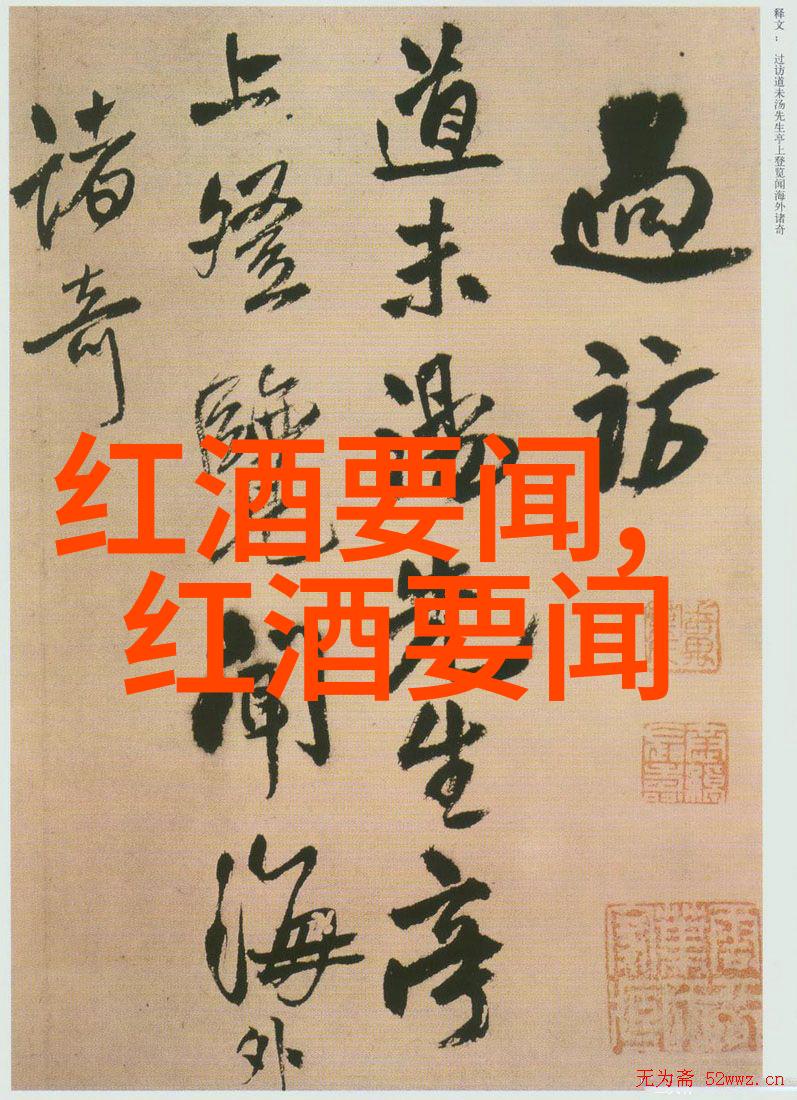 释文： 过访道未汤先生亭上登览闻海外诸奇
過訪
道未湯先生亭
上登覽聞海外
諸奇
红酒要闻,
红酒要闻
无为斋 52wwz.cn